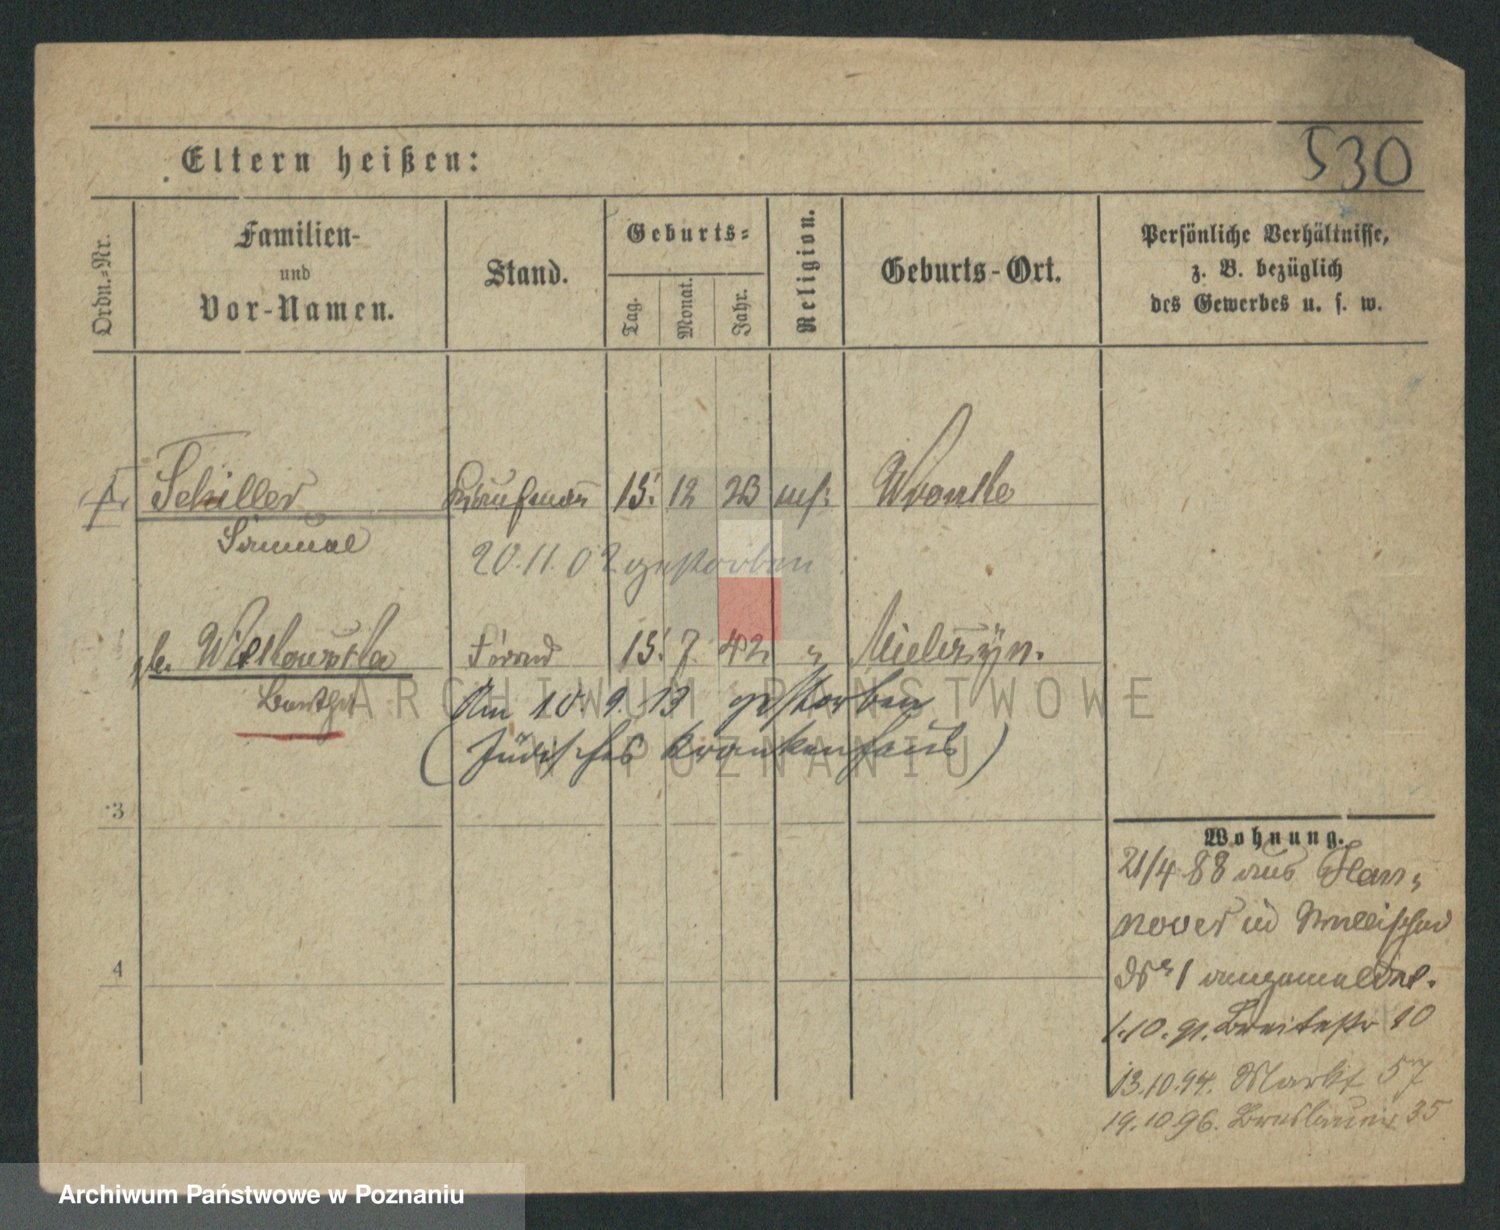 530
Eltern heißen:
Ordn.-Nr.
Familien-
und
Vor-Namen.
Stand.
Geburts-
Tag.
Monat.
Jahr.
Religion.
Geburts-Ort.
Persönliche Verhältnisse,
z. B. bezüglich
des Gewerbes u. s. w.
Schiller Kaufmann 15. 12 23 mos. Wronke
Samuel
20.11.02 gestorben
geb. 15. 7. 42. „ Mielezyn.
Bertha
Am 10. 9. 13 gestorben
(Jüdisches Krankenhaus)
ARCHIWUM PAŃSTWOWE
W POZNANIU
3
4
Wohnung.
21/4 88 aus Han-
nover in
No 1 angemeldet.
1.10.91. Breitestr 10
13.10.94. Markt 57
19.10.96. Breslauer 35
Archiwum Państwowe w Poznaniu